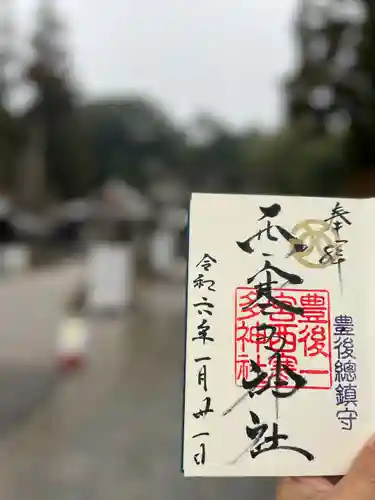 奉拝
豊後總鎮守
西寒多神社
豊後一
宮西寒
多神社
令和六年一月廿一日